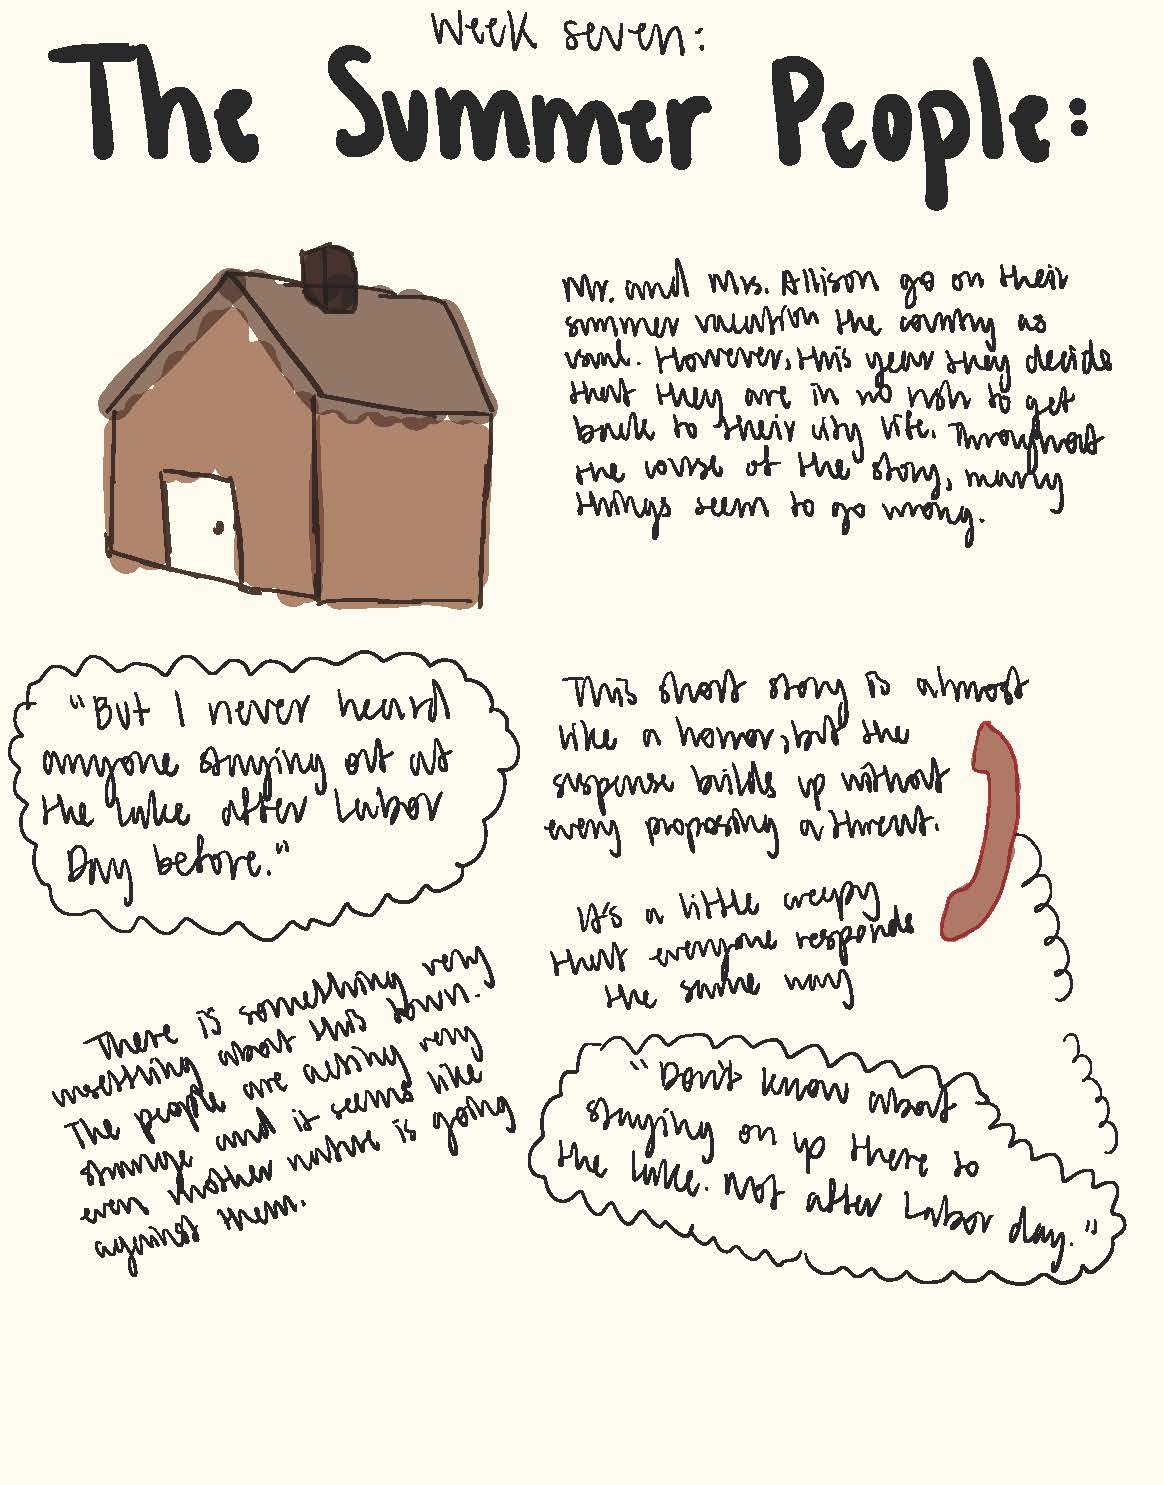 Week seven:
The Summer People:
Mr. and Mrs. Allison go on their
summer vacation the country as
usual. However, this year they decide
that they are in no rush to get
back to their city life. Throughout
the course of the story, many
things seem to go wrong.
"But I never heard
anyone staying out at
the lake after Labor
Day before."
This short story is almost
like a horror, but the
suspense builds up without
every proposing a threat.
It's a little creepy
that everyone responds
the same way
There is something very
unsettling about this town.
The people are acting very
strange and it seems like
even mother nature is going
against them.
"Don't know about
staying on up there to
the lake. Not after Labor day."